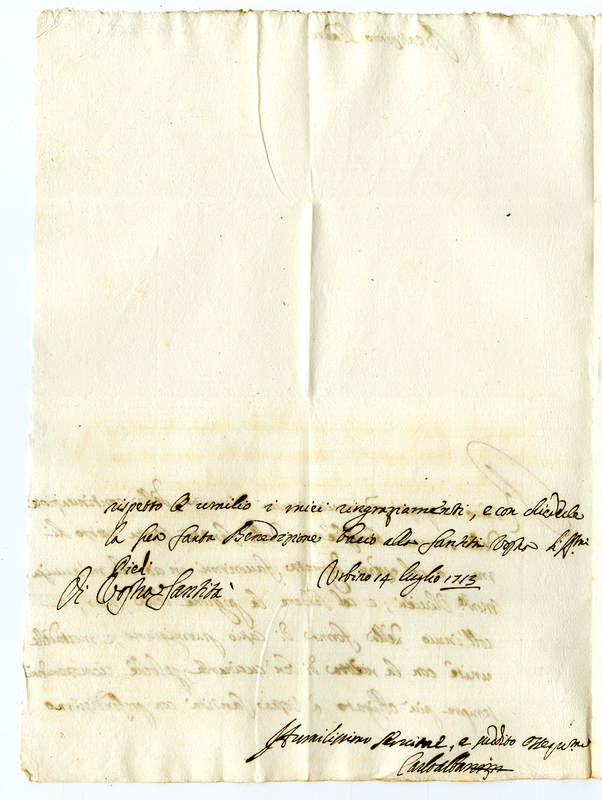 rispetto le umilio i miei ringraziamenti, e con chiederle
la sua Santa Benedizione bacio alla Santità Vostra li SSmi
Piedi
Di Vostra Santità
Urbino 14 luglio 1713
Humilissimo servitore, e suddito
Carlo Albani